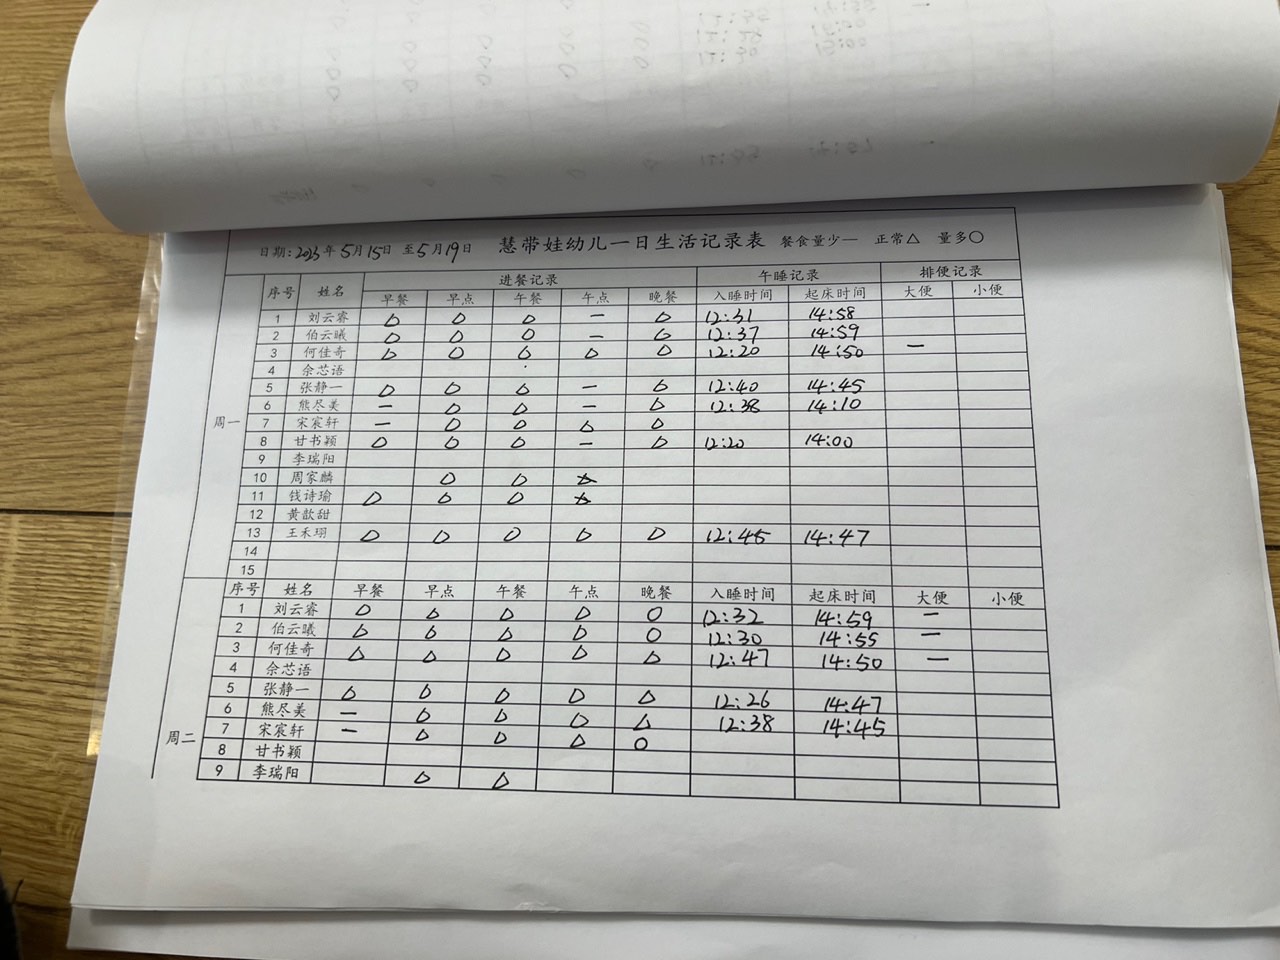 日期:2023年5月15日 至5月19日 慧带娃幼儿一日生活记录表 餐食量少一 正常△ 量多○
序号 姓名 进餐记录 午睡记录 排便记录
早餐 早点 午餐 午点 晚餐 入睡时间 起床时间 大便 小便
周一
1 刘云睿 △ △ △ — △ 12:31 14:58
2 伯云曦 △ △ ○ — △ 12:37 14:59
3 何佳奇 △ ○ △ △ △ 12:20 14:50 —
4 余芯语
5 张静一 △ △ △ — △ 12:40 14:45
6 熊尽美 — △ △ — △ 12:38 14:10
7 宋宸轩 — △ △ △ △
8 甘书颖 △ △ △ — △ 12:20 14:00
9 李瑞阳
10 周家麟 △ △
11 钱诗瑜 △ △ △
12 黄歆甜
13 王禾珝 △ △ △ △ △ 12:45 14:47
14
15
序号 姓名 早餐 早点 午餐 午点 晚餐 入睡时间 起床时间 大便 小便
周二
1 刘云睿 △ △ △ △ ○ 12:32 14:59 —
2 伯云曦 △ △ △ △ ○ 12:30 14:55 —
3 何佳奇 △ △ △ △ △ 12:47 14:50 —
4 余芯语
5 张静一 △ △ △ △ △ 12:26 14:47
6 熊尽美 — △ △ △ △ 12:38 14:45
7 宋宸轩 — △ △ △ ○
8 甘书颖
9 李瑞阳 △ △